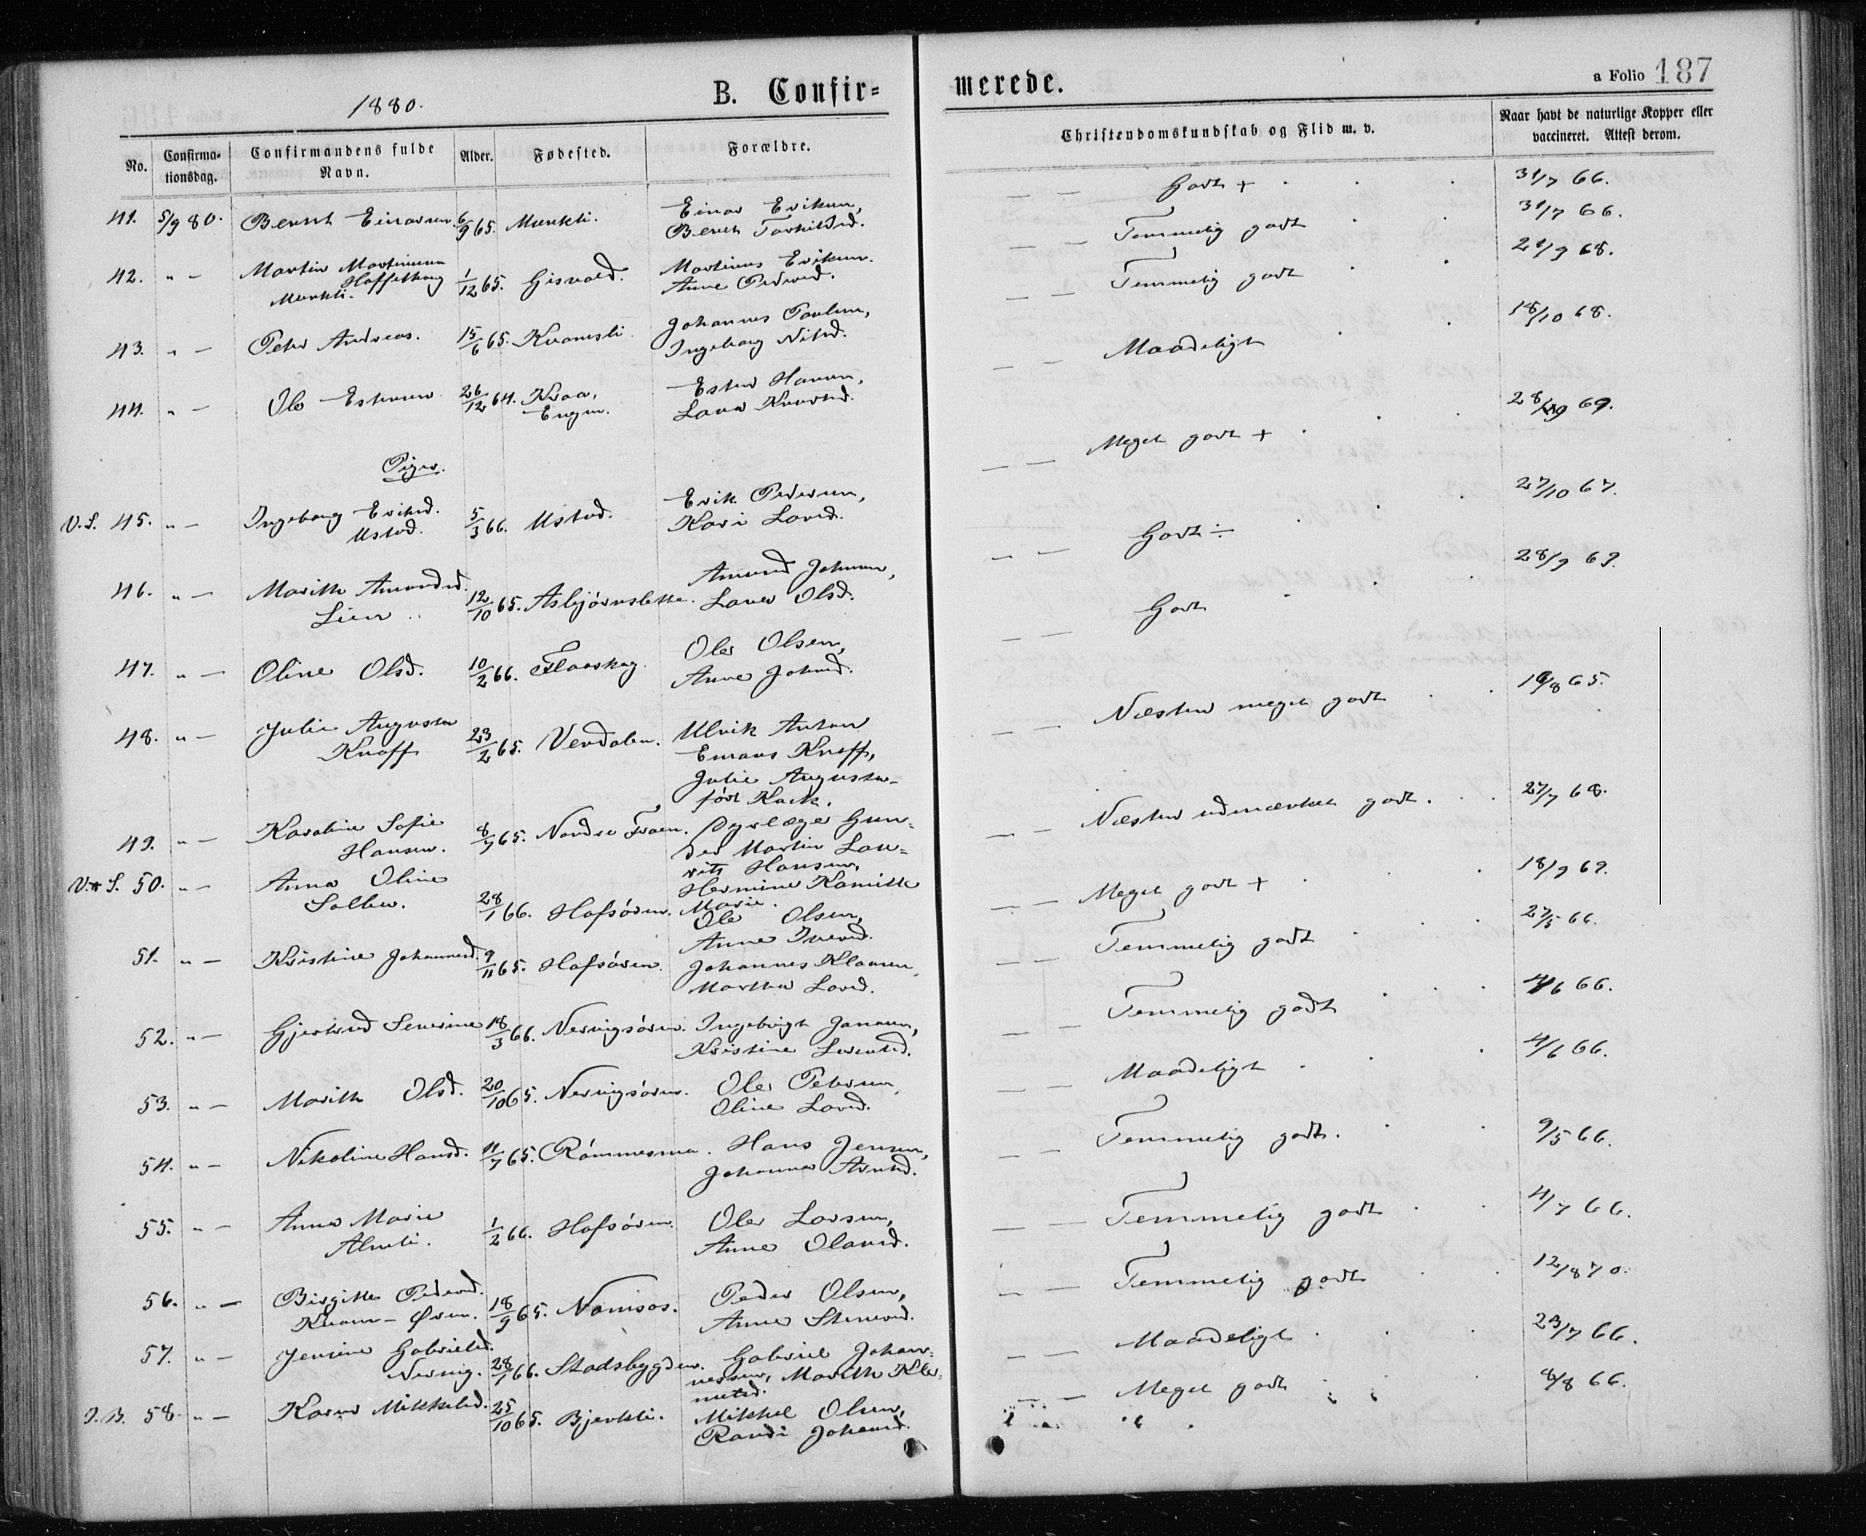 1880.
B. Confir=
merede.
a Folio 187
No.
Confirma-
tionsdag.
Confirmandens fulde
Navn.
Alder.
Fødested.
Forældre.
Christendomskundskab og Flid m. v.
Naar havt de naturlige Kopper eller
vaccineret. Attest derom.
41. 5/9 80. Bernt Einarsen 6/9 65. Murkli. Einar Eriksen, — — Godt + 31/7 66.
Berit
42. " — Martin Martinsen 1/12 65. Gisvold. Martinus Eriksen. — — Temmelig godt 31/7 66.
Murkli. Anne Pedersd.
43. " — Peter Andreas. 15/6 65. Kvamsli. Johannes Paulsen, — — Temmelig godt 21/9 68.
Ingeborg Nilsd.
44. " — Ole Estensen 26/12 64. Kraa, Esten Hansen, — Maadeligt 18/10 68.
Engen.
Piger.
V.S. 45. " — Ingeborg Eriksd. 5/3 66. Ustad. Erik Pedersen, — — Meget godt + 69.
Ustad. Kari Larsd.
46. " — Marith Amundsd. 12/10 65. Asbjørnslette. Amund Johnsen, — — Godt ÷ 27/10 67.
Lien. Olsd.
47. " — Oline Olsd. 10/2 66. Flaaskog. Ole Olsen, — — Godt 28/9 69.
Anne Johnsd.
48. " — Julie Augusta 23/2 65. Verdalen. Ulrik Anton — — Næsten meget godt 65.
Knoff Emaus Knoff,
Julie Augusta
født
49. " — Karoline Sofie 8/7 65. Nordre Dyrlæge Gun- — — Næsten udmærket godt. 27/7 68.
Hansen. der Martin Lau-
rits Hansen,
Hermine Kamille
Marie.
V.S. 50. " — Anna Oline 28/1 66. Hofsøren. Ole Olsen, — — Meget godt + 18/9 69.
Solbu. Anne Iversd.
51. " — Kristine Johannesd. 9/11 65. Hofsøren. Johannes Klausen, — — Temmelig godt 27/5 66.
Martha Larsd.
52. " — Gjertrud Severine 18/3 66. Nervigsøren. Ingebrigt Jensen, — — Temmelig godt 4/6 66.
Kristine
53. " — Marith Olsd. 20/10 65. Nervigsøren. Ole Petersen, — — Maadeligt 4/6 66.
Oline Larsd.
54. " — Nikoline Hansd. 11/7 65. Rømmesmo. Hans Jensen, — — Temmelig godt. 9/5 66.
Johanna
55. " — Anna Marie 1/2 66. Hofsøren. Ole Larsen, — — Temmelig godt 4/7 66.
Almli. Anne Olausd.
56. " — Birgitte Pedersd. 18/9 65. Namsos. Peder Olsen, — — Temmelig godt 12/8 70.
Kvam-Øren. Anne Stenersd.
57. " — Jensine Gabrielsd. 28/1 66. Stadsbygden. Gabriel Johan- — — Maadeligt 23/7 66.
Nervig. nessen, Marith Kle-
metsd.
I.B. 58. " — Karen Mikkelsd. 25/10 65. Bjerkli. Mikkel Olsen, — — Meget godt 8/8 66.
Randi Johansd.